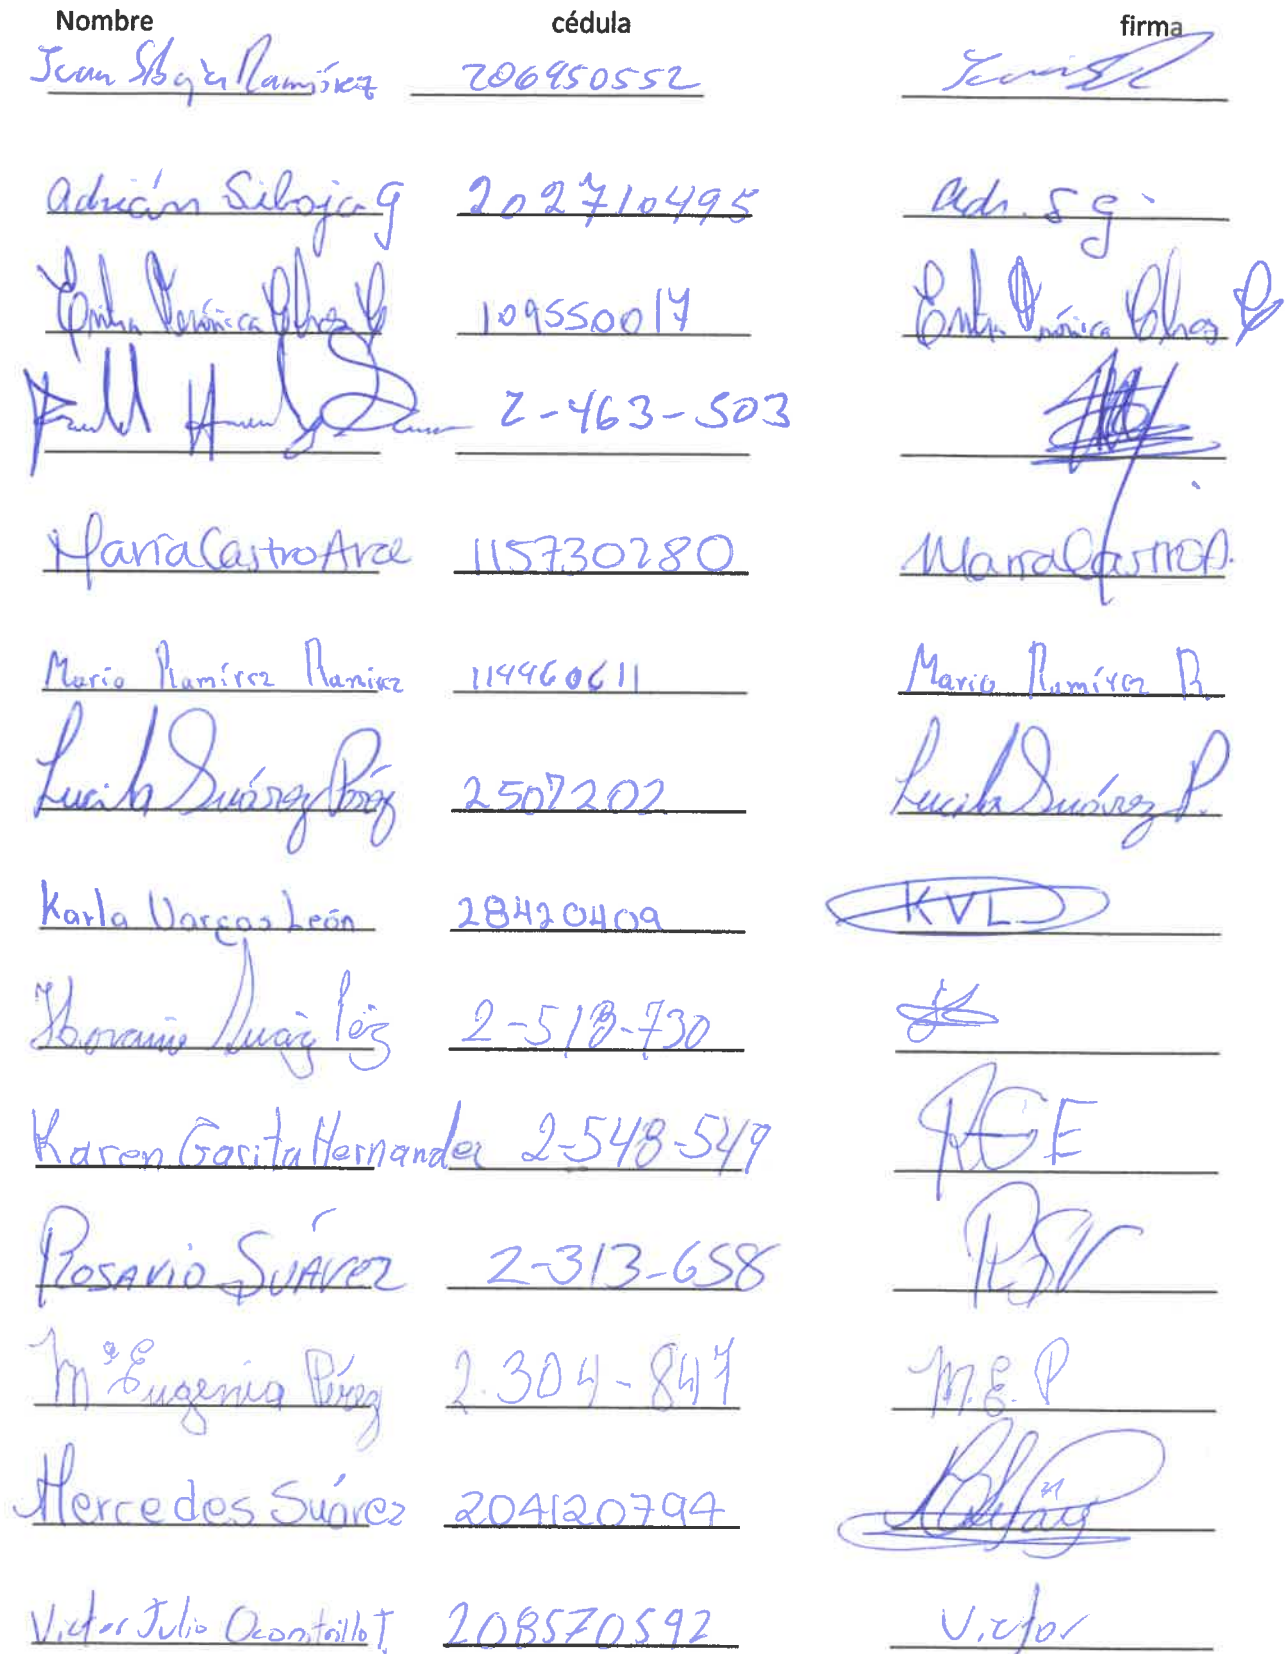 Nombre cédula firma
Ramírez 206950552
Adrián Siboja G 202710495 Adr. S G
Verónica 109550017 Verónica
2-463-503
María Castro Arce 115730280 María Castro A.
Mario Ramírez Ramírez 114460611 Mario Ramírez R.
Lucila Suárez Pérez 2507202 Lucila Suárez P.
Karla Vargas León 28420409 KVL
2-518-730
Karen Garita Hernandez 2-548-549
Rosario Suárez 2-313-658 RSV
Mª Eugenia Pérez 2.304-847 M.E.P
Mercedes Suárez 204120794
Victor Julio Ocontrillo T. 208570592 Victor